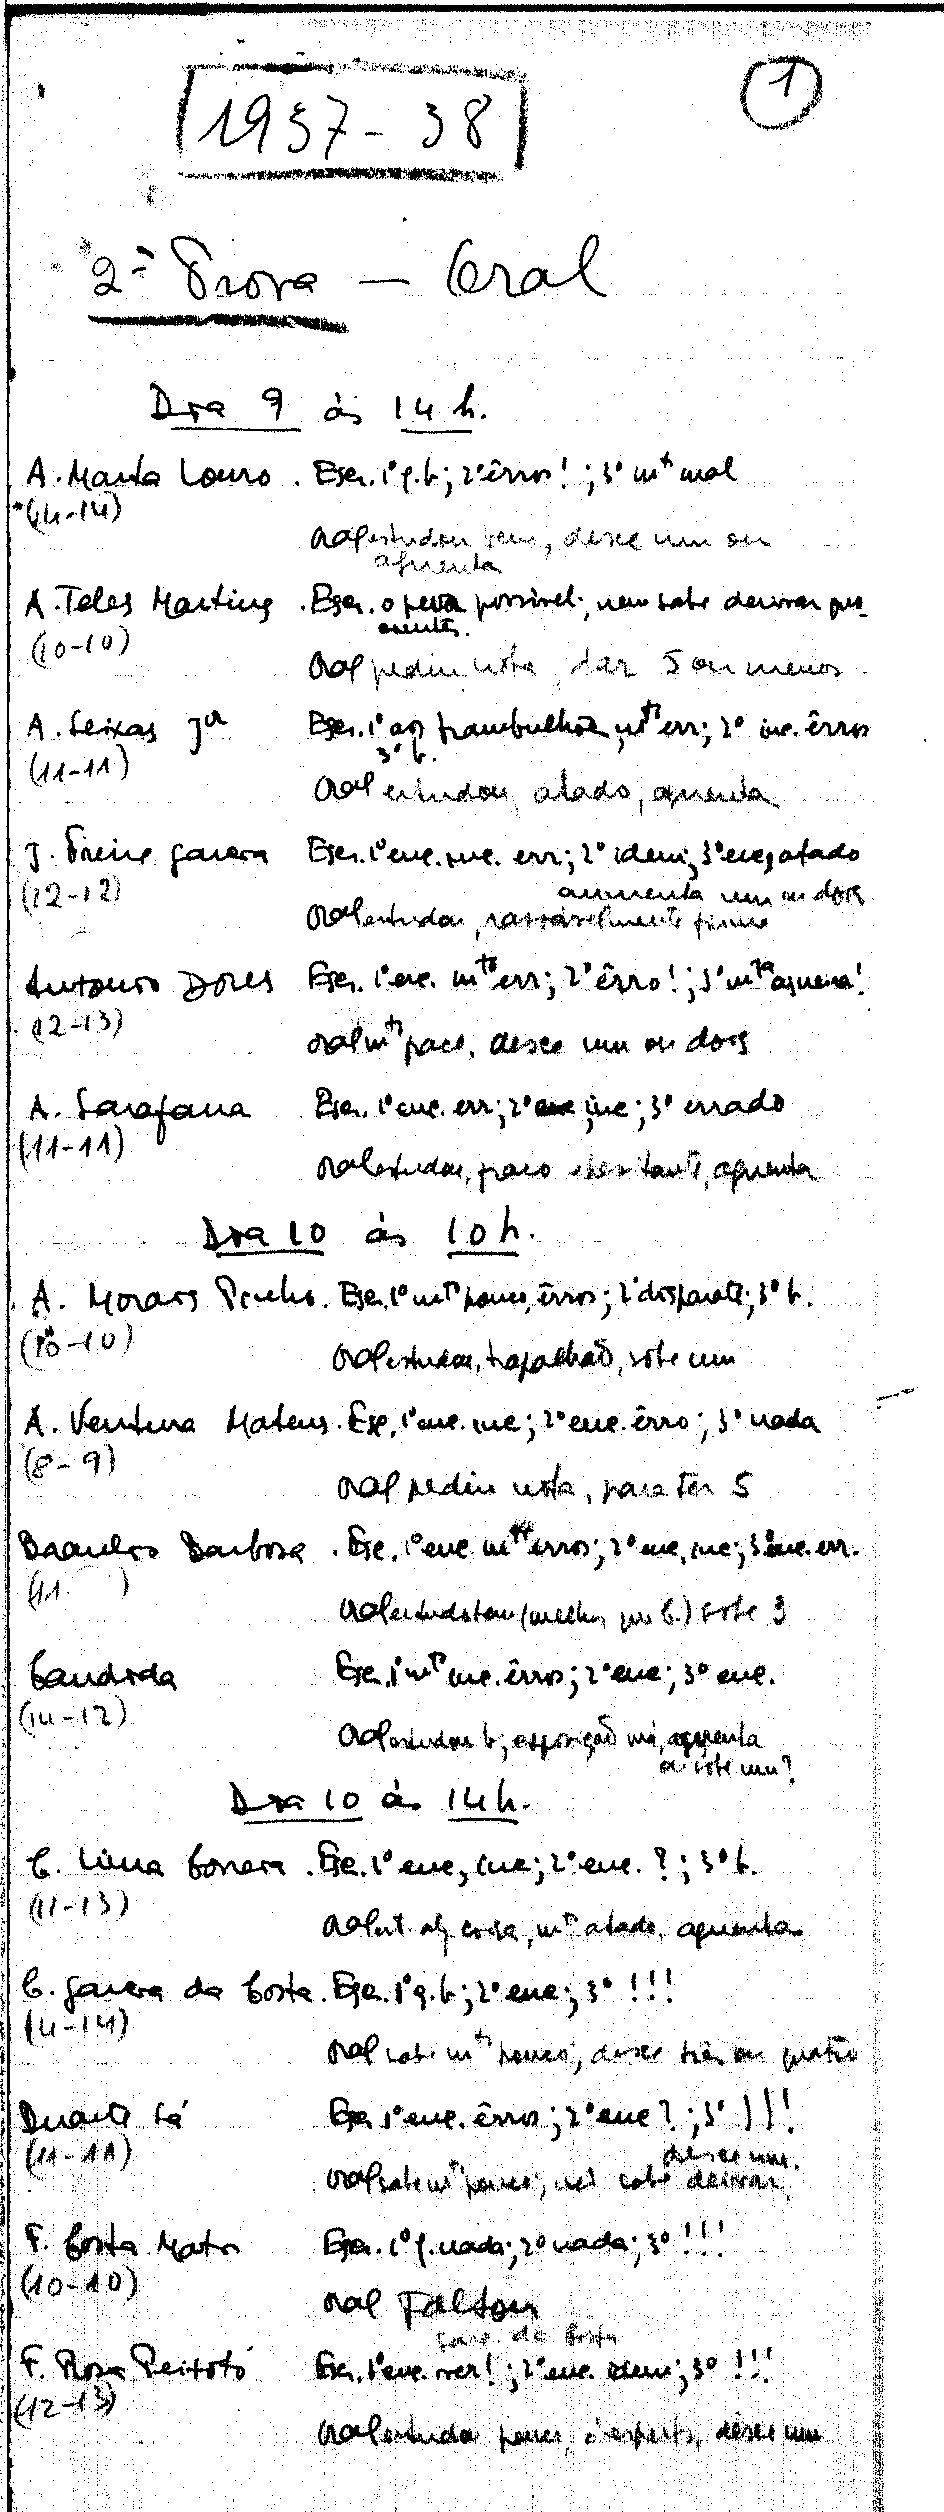 1
1937-38
2ª Prova - Oral
Dia 9 às 14 h.
A. Manta Louro. Escr. 1º q.b; 2º êrros!; 3º mtº mal
(14-14)
Oral estudou bem, desce um ou
aguenta
A. Teles Martins. Escr. o peior possivel; nem sabe derivar
(10-10)
Oral pediu nota, dar 5 ou menos
A. Seixas Jor Escr. 1º trambulhão, mtº err; 2º inc. êrros
3º b.
(11-11)
Oral estudou, atado, aguenta
J. Freire Escr. 1º enc. inc. err; 2º idem; 3º enc, atado
(12-12)
aumenta um ou dois
Oral estudou, rasoávelmente firme
António Dores Escr. 1º enc. mtº err; 2º êrro!; 3º mtª asneira!
(12-13)
Oral mtº fraco, desce um ou dois
A. Sarafana Escr. 1º enc. err; 2º inc; 3º errado
(11-11)
Oral estudou, fraco hesitante, aguenta
Dia 10 às 10 h.
A. Morais Escr. 1º mtº pouco, êrros; 2º disparate; 3º b.
(10-10)
Oral estudou, trapalhão, sobe um
A. Ventura Mateus. Esc. 1º enc. inc; 2º enc. êrro; 3º nada
(8-9)
Oral pediu nota, para ter 5
Barbosa. Esc. 1º enc mtºˢ erros; 2º enc, inc; 3º enc. err.
(11 )
Oral sobe 3
Candida Esc. 1º mtº inc. êrros; 2º enc; 3º enc.
(14-12)
Oral estudou b; exposição má, aguenta
ou sobe um?
Dia 10 às 14h.
C. Lima Correia. Esc. 1º enc, inc; 2º enc. ?; 3º b.
(11-13)
Oral est. alg coisa, mtº atado, aguenta
C. da Costa. Esc. 1º q.b; 2º enc; 3º !!!
(14-14)
Oral sabe mtº pouco, desce três ou quatro
Duarte Sá Esc. 1º enc. êrros; 2º enc?; 3º !!!
(11-11)
desce um.
Oral sabe mtº pouco, não sabe derivar,
F. Costa Matos Escr. 1º q. nada; 2º nada; 3º !!!
(10-10)
Oral Faltou
F. Rosa Peixoto Esc. 1º enc. ; 2º enc. idem; 3º !!!
(12-13)
Oral estudou pouco, é esperto, desce um